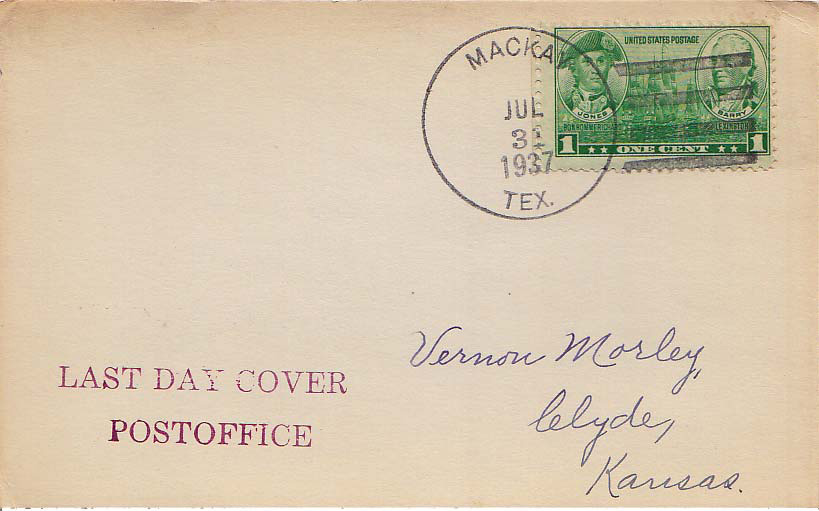 MACKAY
JUL
31
1937
TEX.
UNITED STATES POSTAGE
JONES
BARRY
BON HOMME RICHARD
LEXINGTON
1 ONE CENT 1
LAST DAY COVER
POSTOFFICE
Vernon Morley,
Clyde,
Kansas.